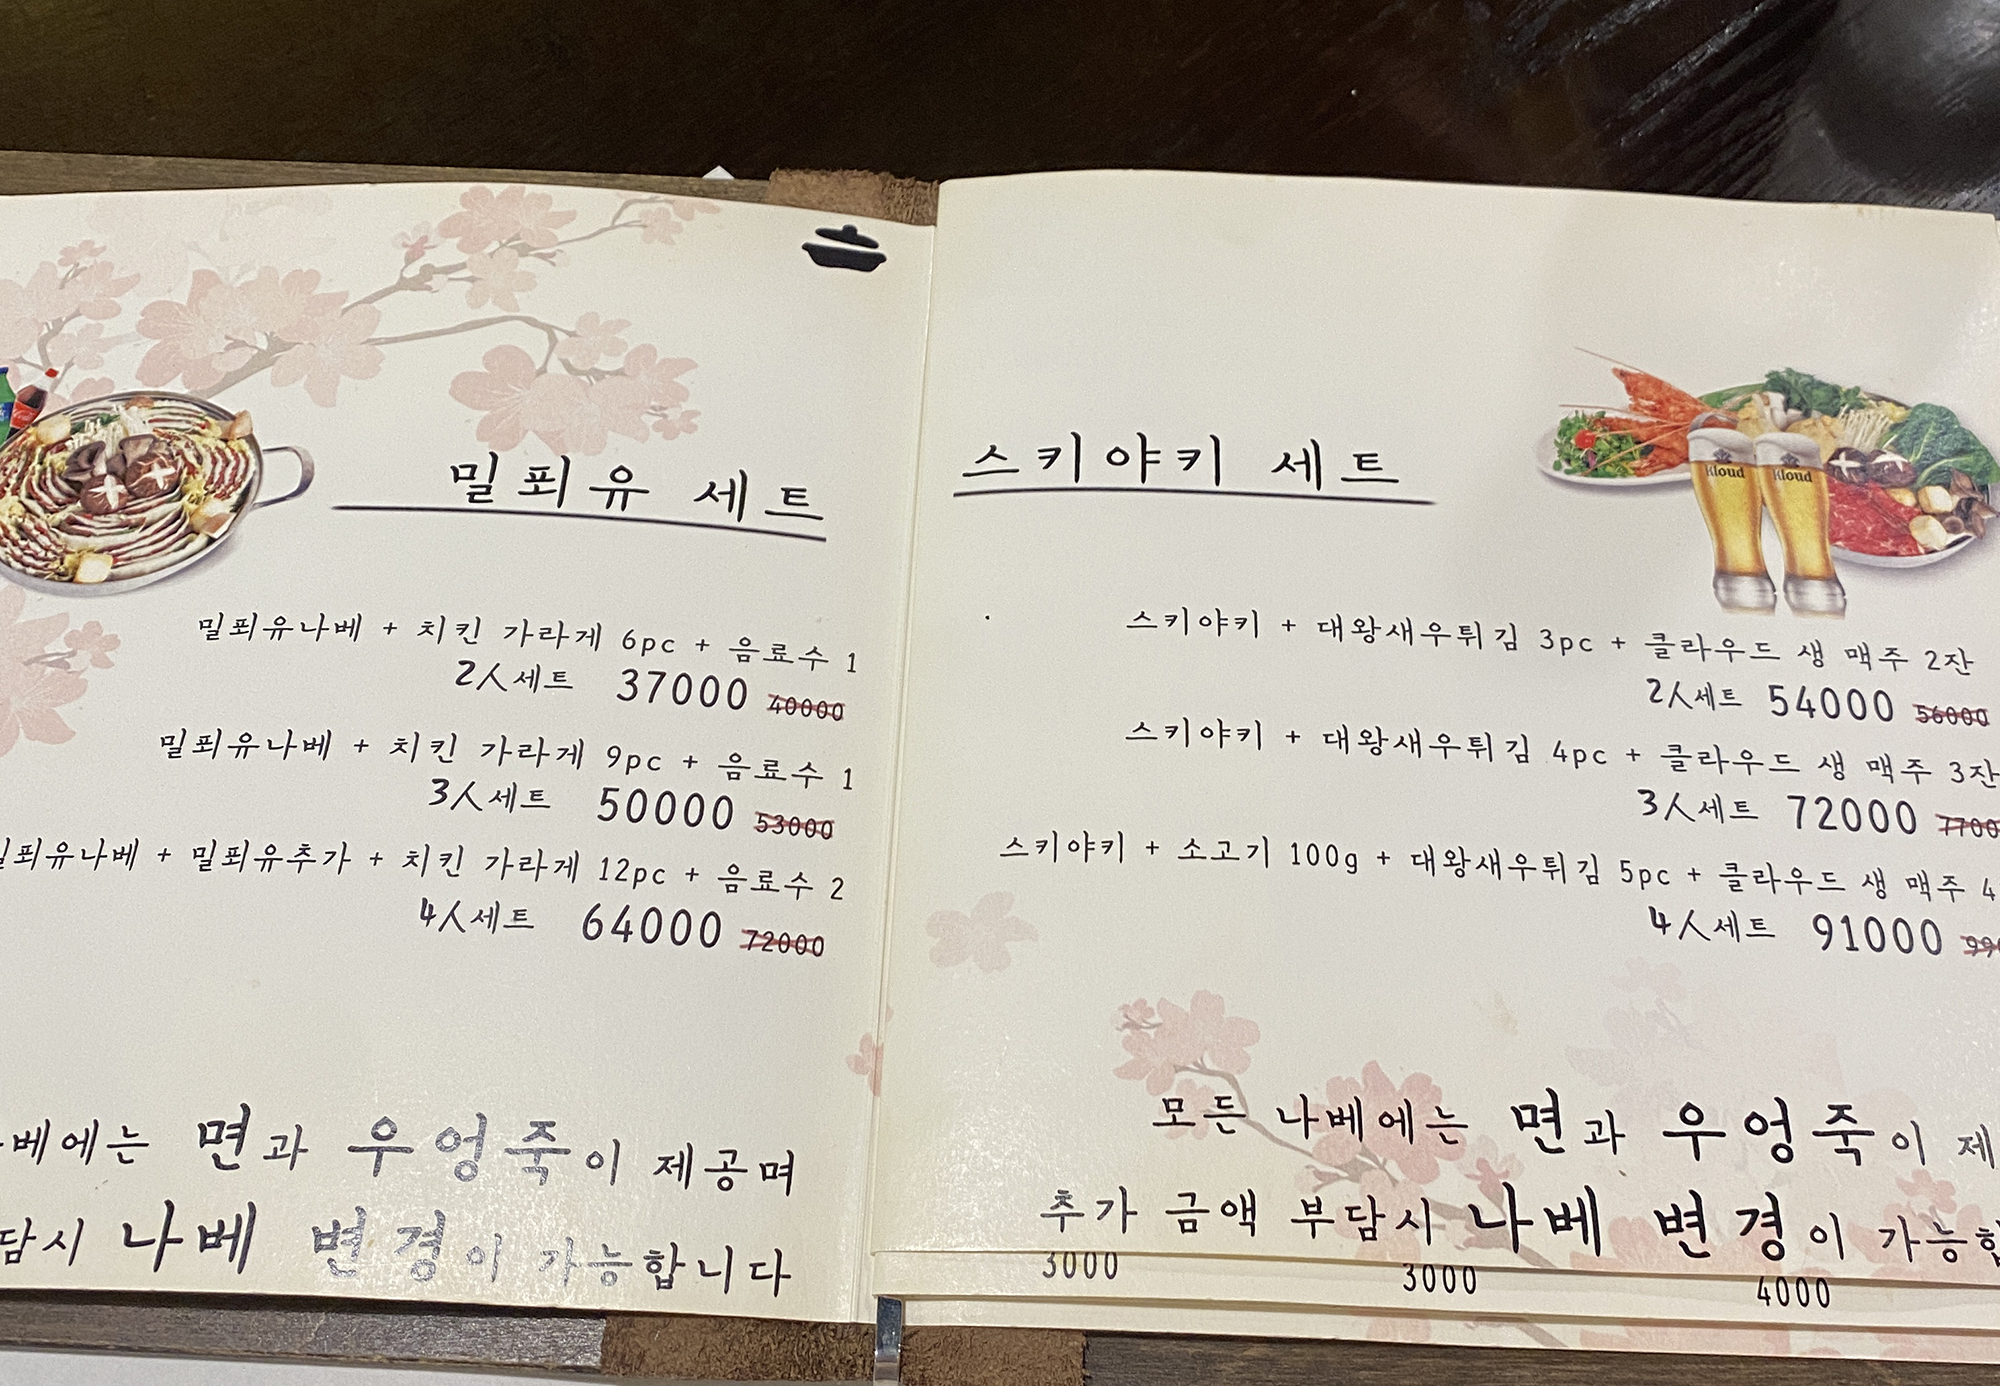 밀푀유 세트
밀푀유나베 + 치킨 가라게 6pc + 음료수 1
2人세트 37000 40000
밀푀유나베 + 치킨 가라게 9pc + 음료수 1
3人세트 50000 53000
밀푀유나베 + 밀푀유추가 + 치킨 가라게 12pc + 음료수 2
4人세트 64000 72000
베에는 면과 우엉죽이 제공며
담시 나베 변경이 가능합니다
스키야키 세트
Kloud Kloud
스키야키 + 대왕새우튀김 3pc + 클라우드 생 맥주 2잔
2人세트 54000 56000
스키야키 + 대왕새우튀김 4pc + 클라우드 생 맥주 3잔
3人세트 72000 7700
스키야키 + 소고기 100g + 대왕새우튀김 5pc + 클라우드 생 맥주 4
4人세트 91000
모든 나베에는 면과 우엉죽이 제
추가 금액 부담시 나베 변경이 가능합
3000 3000 4000